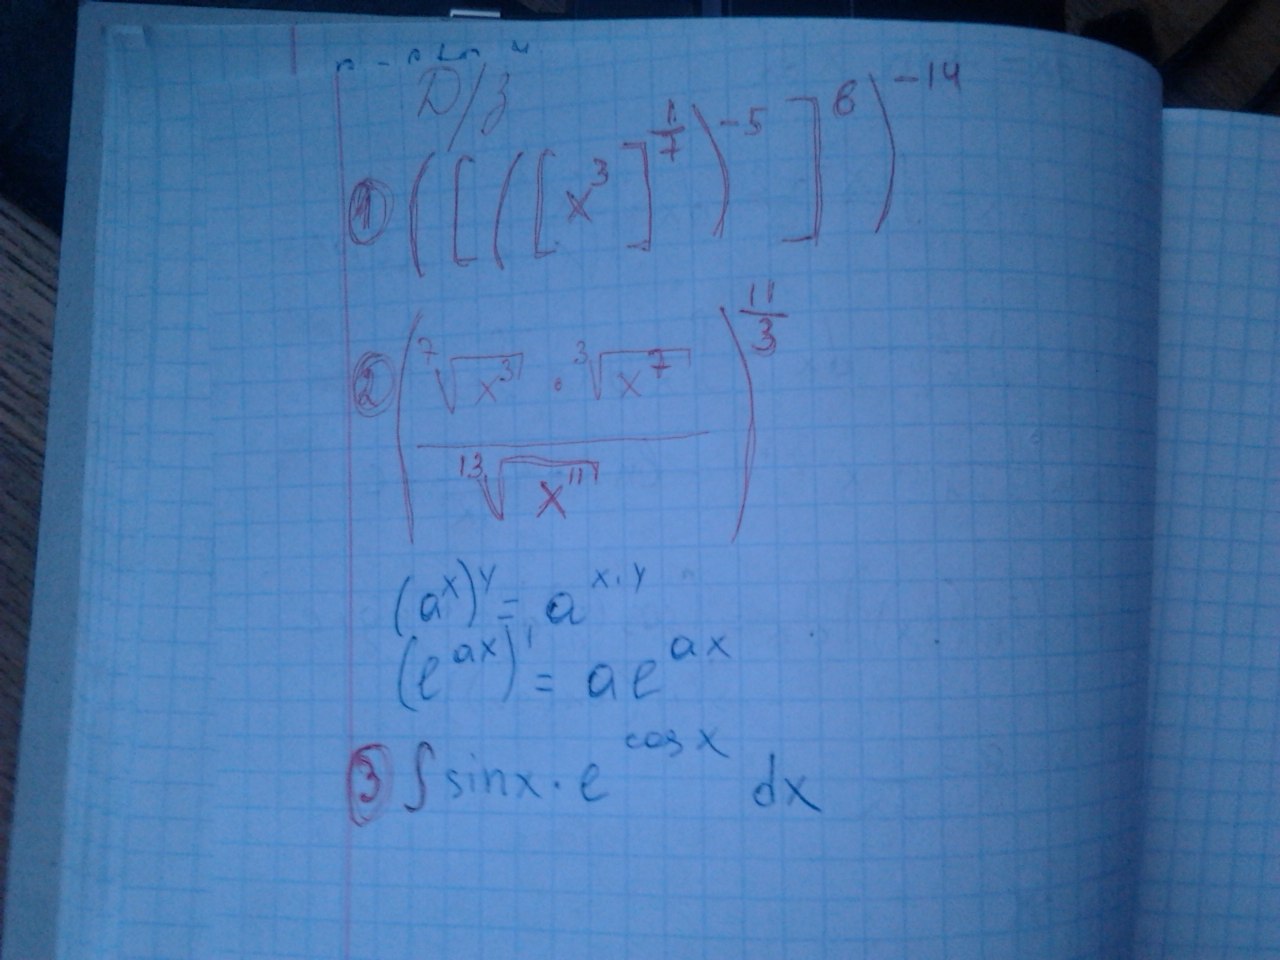 Д/з
① ([([x³]^(1/7))^(-5)]^6)^(-14)
② ((⁷√x³ · ³√x⁷) / ¹³√x¹¹)^(11/3)
(a^x)^y = a^(x·y)
(e^(ax))' = ae^(ax)
③ ∫ sinx · e^(cos x) dx